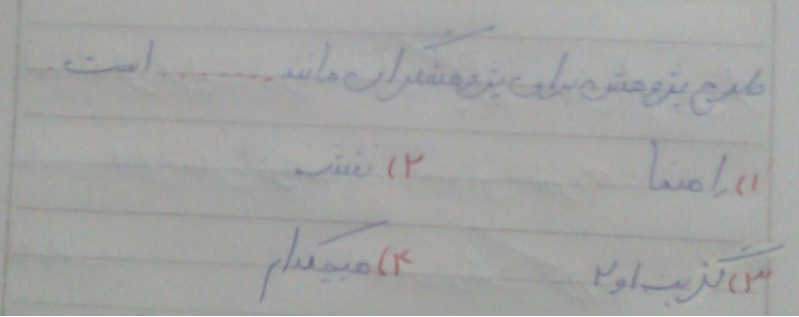 طرح پژوهش برای پژوهشگران مانند ......... است.
۱) راهنما ۲) نقشه
۳) گزینه ۱و۲ ۴) هیچکدام